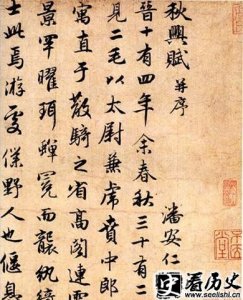 秋興賦 并序
潘安仁
晉十有四年余春秋三十有二
見二毛以太尉兼虎賁中郎
寓直于散騎之省高閣連雲
景罕曜珥蟬冕而襲紈綺
士此焉游處僕野人也偃息
看历史
www.seelishi.cn